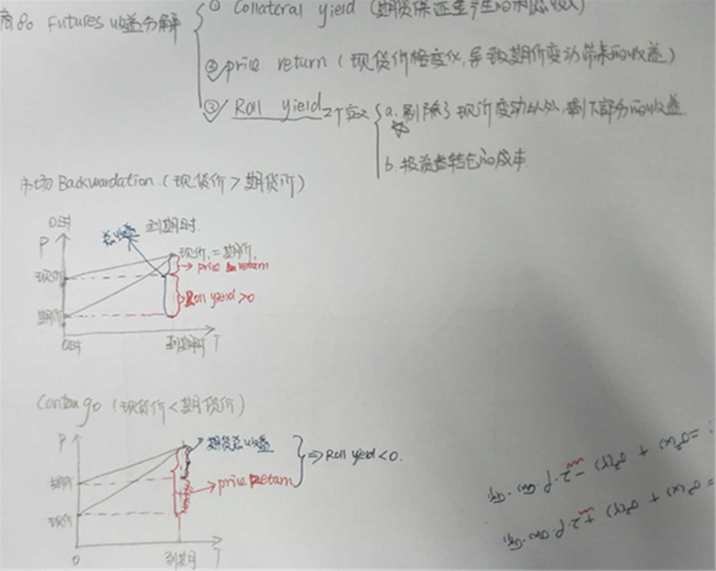 商品 Futures 收益分解
① Collateral yield (期货保证金产生的利息收入)
② price return (现货价格变化,导致期价变动带来的收益)
③ Roll yield 2个定义
a. 剔除了现价变动以外,剩下部分的收益.
b. 投资者转仓的成本.
市场 Backwardation. (现货价 > 期货价)
P
总收益
到期时.
现价. = 期价.
现价
price return
Roll yield >0
期价
到期时 T
Contango (现货价 < 期货价)
P
期货总收益
⇒ Roll yield <0.
期价
price Return
现价
0 到期 T